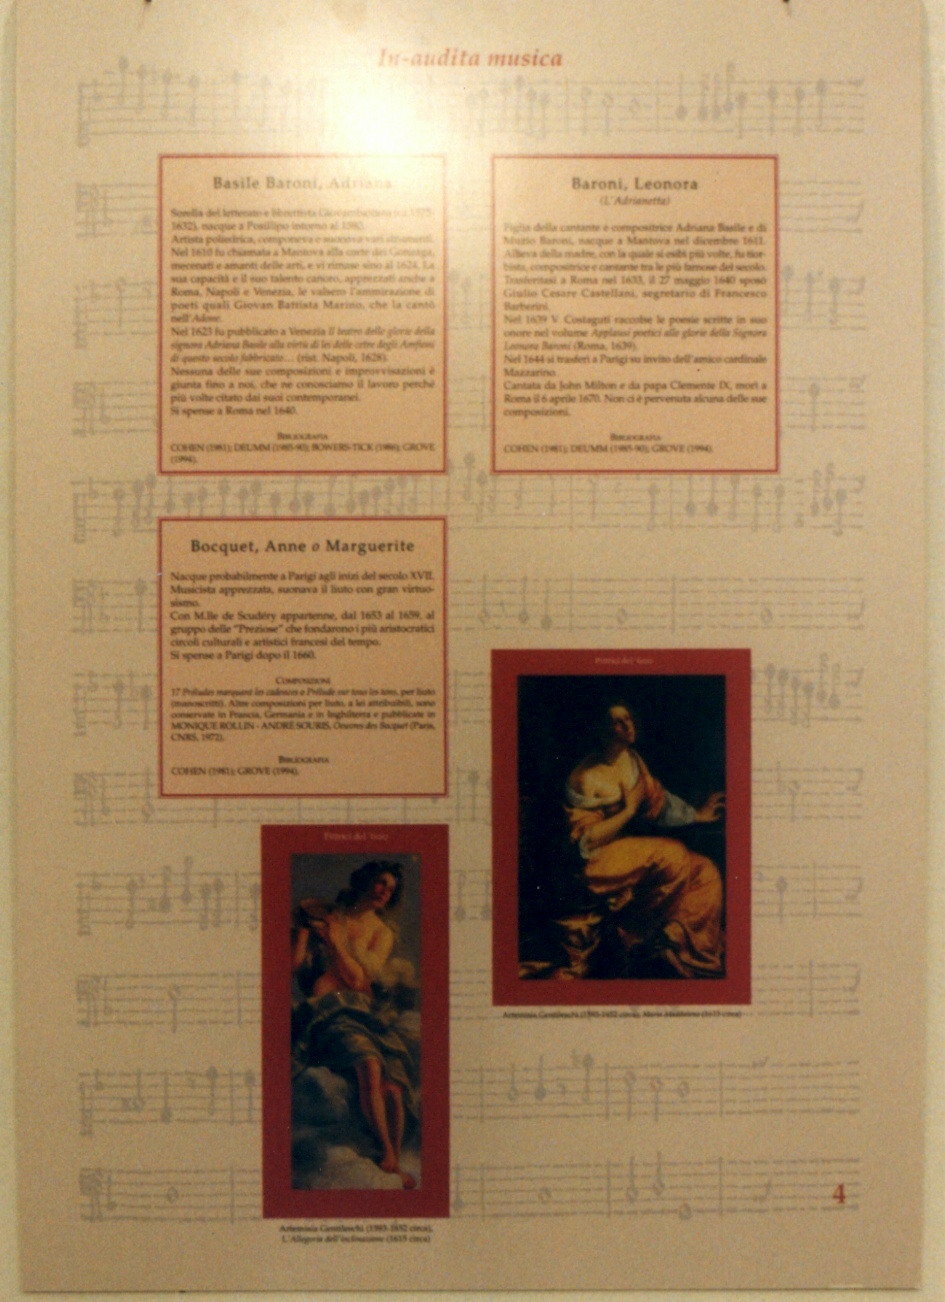 In-audita musica
Basile Baroni, Adriana
Sorella del letterato e librettista Giovan
1632), nacque a Posillipo intorno al 1580.
Artista poliedrica, componeva e suonava vari strumenti.
Nel 1610 fu chiamata a Mantova alla corte dei Gonzaga,
mecenati e amanti delle arti, e vi rimase sino al 1624. La
sua capacità e il suo talento canoro, apprezzati anche a
Roma, Napoli e Venezia, le valsero l'ammirazione di
poeti quali Giovan Battista Marino, che la cantò
nell'Adone.
Nel 1623 fu pubblicato a Venezia Il teatro delle glorie della
signora Adriana Basile alla virtù di lei dalle cetre degli Anfioni
di questo secolo fabbricato... (rist. Napoli, 1628).
Nessuna delle sue composizioni e improvvisazioni è
giunta fino a noi, che ne conosciamo il lavoro perché
più volte citato dai suoi contemporanei.
Si spense a Roma nel 1640.
BIBLIOGRAFIA
COHEN (1981); DEUMM (1985-90); BOWERS-TICK (1986); GROVE
(1994).
Baroni, Leonora
(L'Adrianetta)
Figlia della cantante e compositrice Adriana Basile e di
Muzio Baroni, nacque a Mantova nel dicembre 1611.
Allieva della madre, con la quale si esibì più volte, fu tior-
bista, compositrice e cantante tra le più famose del secolo.
Trasferitasi a Roma nel 1633, il 27 maggio 1640 sposò
Giulio Cesare Castellani, segretario di Francesco
Barberini.
Nel 1639 V. Costaguti raccolse le poesie scritte in suo
onore nel volume Applausi poetici alle glorie della Signora
Leonora Baroni (Roma, 1639).
Nel 1644 si trasferì a Parigi su invito dell'amico cardinale
Mazzarino.
Cantata da John Milton e da papa Clemente IX, morì a
Roma il 6 aprile 1670. Non ci è pervenuta alcuna delle sue
composizioni.
BIBLIOGRAFIA
COHEN (1981); DEUMM (1985-90); GROVE (1994).
Bocquet, Anne o Marguerite
Nacque probabilmente a Parigi agli inizi del secolo XVII.
Musicista apprezzata, suonava il liuto con gran virtuo-
sismo.
Con M.lle de Scudéry appartenne, dal 1653 al 1659, al
gruppo delle "Preziose" che fondarono i più aristocratici
circoli culturali e artistici francesi del tempo.
Si spense a Parigi dopo il 1660.
COMPOSIZIONI
17 Préludes marquant les cadences e Prélude sur tous les tons, per liuto
(manoscritti). Altre composizioni per liuto, a lei attribuibili, sono
conservate in Francia, Germania e in Inghilterra e pubblicate in
MONIQUE ROLLIN - ANDRÉ SOURIS, Oeuvres des Bocquet (Paris,
CNRS, 1972).
BIBLIOGRAFIA
COHEN (1981); GROVE (1994).
Artemisia Gentileschi (1593-1652 circa), Maria Maddalena (1615 circa)
Artemisia Gentileschi (1593-1652 circa),
L'Allegoria dell'inclinazione (1615 circa)
4